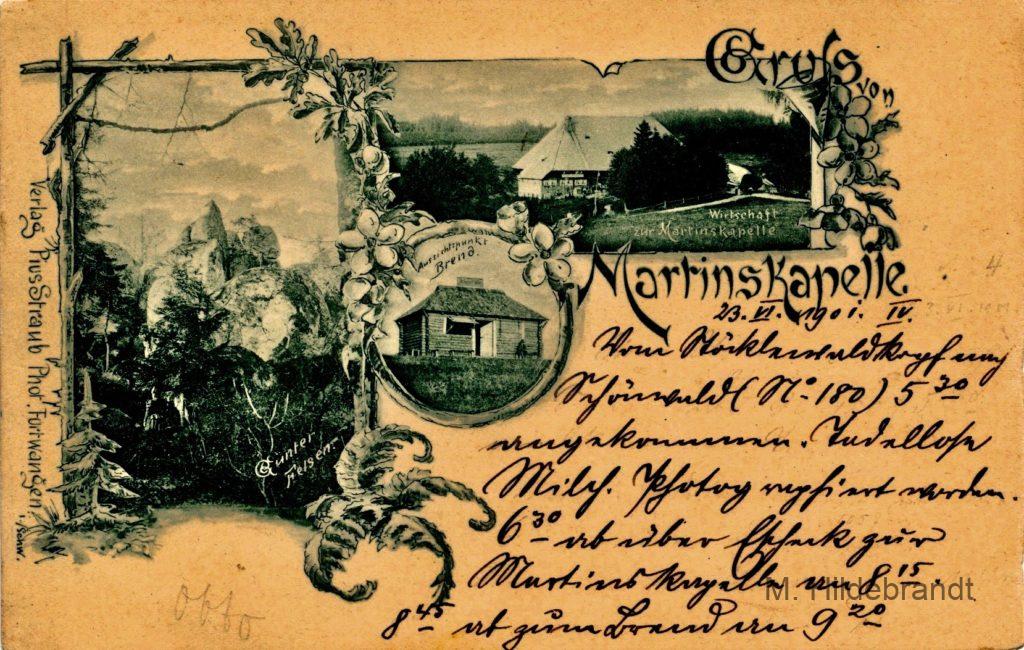 Gruß von
Martinskapelle.
Wirtschaft
zur Martinskapelle
Aussichtspunkt
Brend.
Günter
Felsen.
Verlag Pius Straub Phot Furtwangen i/Schw.
4
23. VI. 1901. IV.
Vom Stöcklewaldkopf nach
Schönwald (No. 180) 5 30
angekommen. Tadellose
Milch. Photographiert worden.
6 30 ab über Escheck zur
Martinskapelle an 8 15
8 45 ab zum Brend an 9 20
M. Hildebrandt